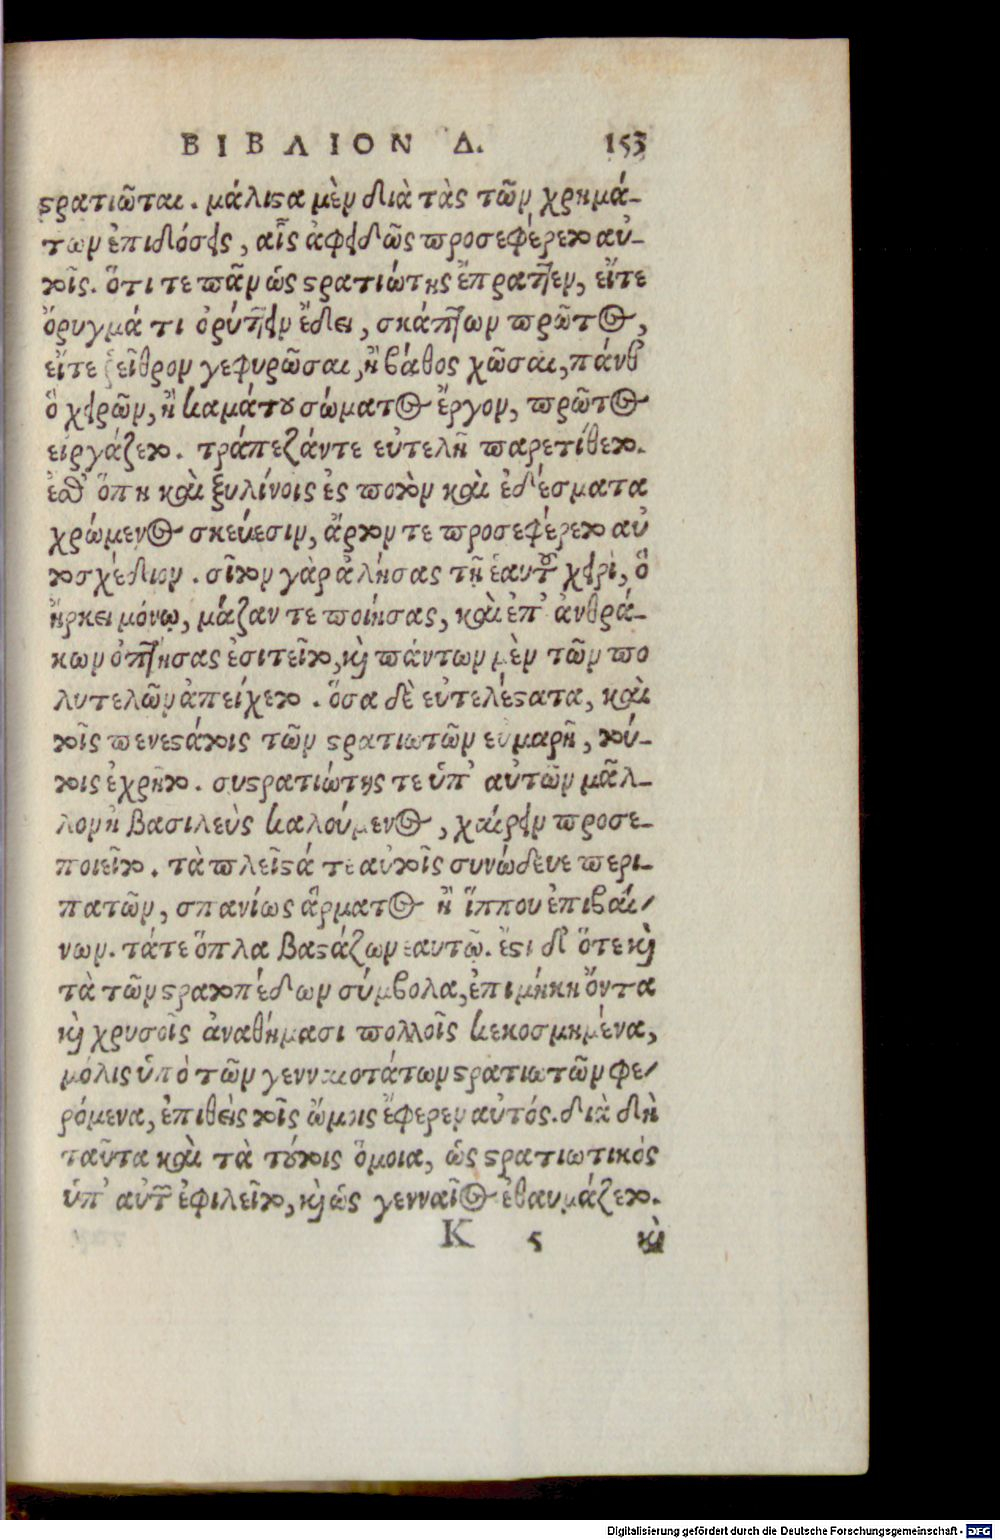 ΒΙΒΛΙΟΝ Δ. 153
στρατιῶται. μάλιστα μὲν διὰ τὰς τῶν χρημά-
των ἐπιδόσεις, αἷς ἀφειδῶς προσεφέρετο αὐ-
τοῖς. ὅτι τε πᾶν ὡς στρατιώτης ἔπραττεν, εἴτε
ὄρυγμά τι ὀρύττειν ἔδει, σκάπτων πρῶτος,
εἴτε ῥεῖθρον γεφυρῶσαι, ἢ βάθος χῶσαι, πάνθ'
ὃ χειρῶν, ἢ καμάτου σώματος ἔργον, πρῶτος
εἰργάζετο. τράπεζάντε εὐτελῆ παρετίθετο.
ἐσθ' ὅπη καὶ ξυλίνοις ἐς ποτὸν καὶ ἐδέσματα
χρώμενος σκεύεσιν, ἄρτον τε προσεφέρετο αὐ
τοσχέδιον. σῖτον γὰρ ἀλήσας τῇ ἑαυτοῦ χειρὶ, ὃ
ἤρκει μόνῳ, μάζαν τε ποιήσας, καὶ ἐπ' ἀνθρά-
κων ὀπτήσας ἐσιτεῖτο, καὶ πάντων μὲν τῶν πο
λυτελῶν ἀπείχετο. ὅσα δὲ εὐτελέστατα, καὶ
τοῖς πενεστάτοις τῶν στρατιωτῶν εὐμαρῆ, τού-
τοις ἐχρῆτο. συστρατιώτης τε ὑπ' αὐτῶν μᾶλ-
λον ἢ βασιλεὺς καλούμενος, χαίρειν προσε-
ποιεῖτο. τὰ πλεῖστά τε αὐτοῖς συνώδευε περι-
πατῶν, σπανίως ἅρματος ἢ ἵππου ἐπιβαί-
νων. τάτε ὅπλα βαστάζων ἑαυτῷ. ἔστι δ' ὅτε καὶ
τὰ τῶν στρατοπέδων σύμβολα, ἐπιμήκη ὄντα
καὶ χρυσοῖς ἀναθήμασι πολλοῖς κεκοσμημένα,
μόλις ὑπὸ τῶν γενναιοτάτων στρατιωτῶν φε-
ρόμενα, ἐπιθεὶς τοῖς ὤμοις ἔφερεν αὐτός. διὰ δὴ
ταῦτα καὶ τὰ τούτοις ὅμοια, ὡς στρατιωτικός
ὑπ' αὐτῶν ἐφιλεῖτο, καὶ ὡς γενναῖος ἐθαυμάζετο.
K 5 καὶ
Digitalisierung gefördert durch die Deutsche Forschungsgemeinschaft - DFG